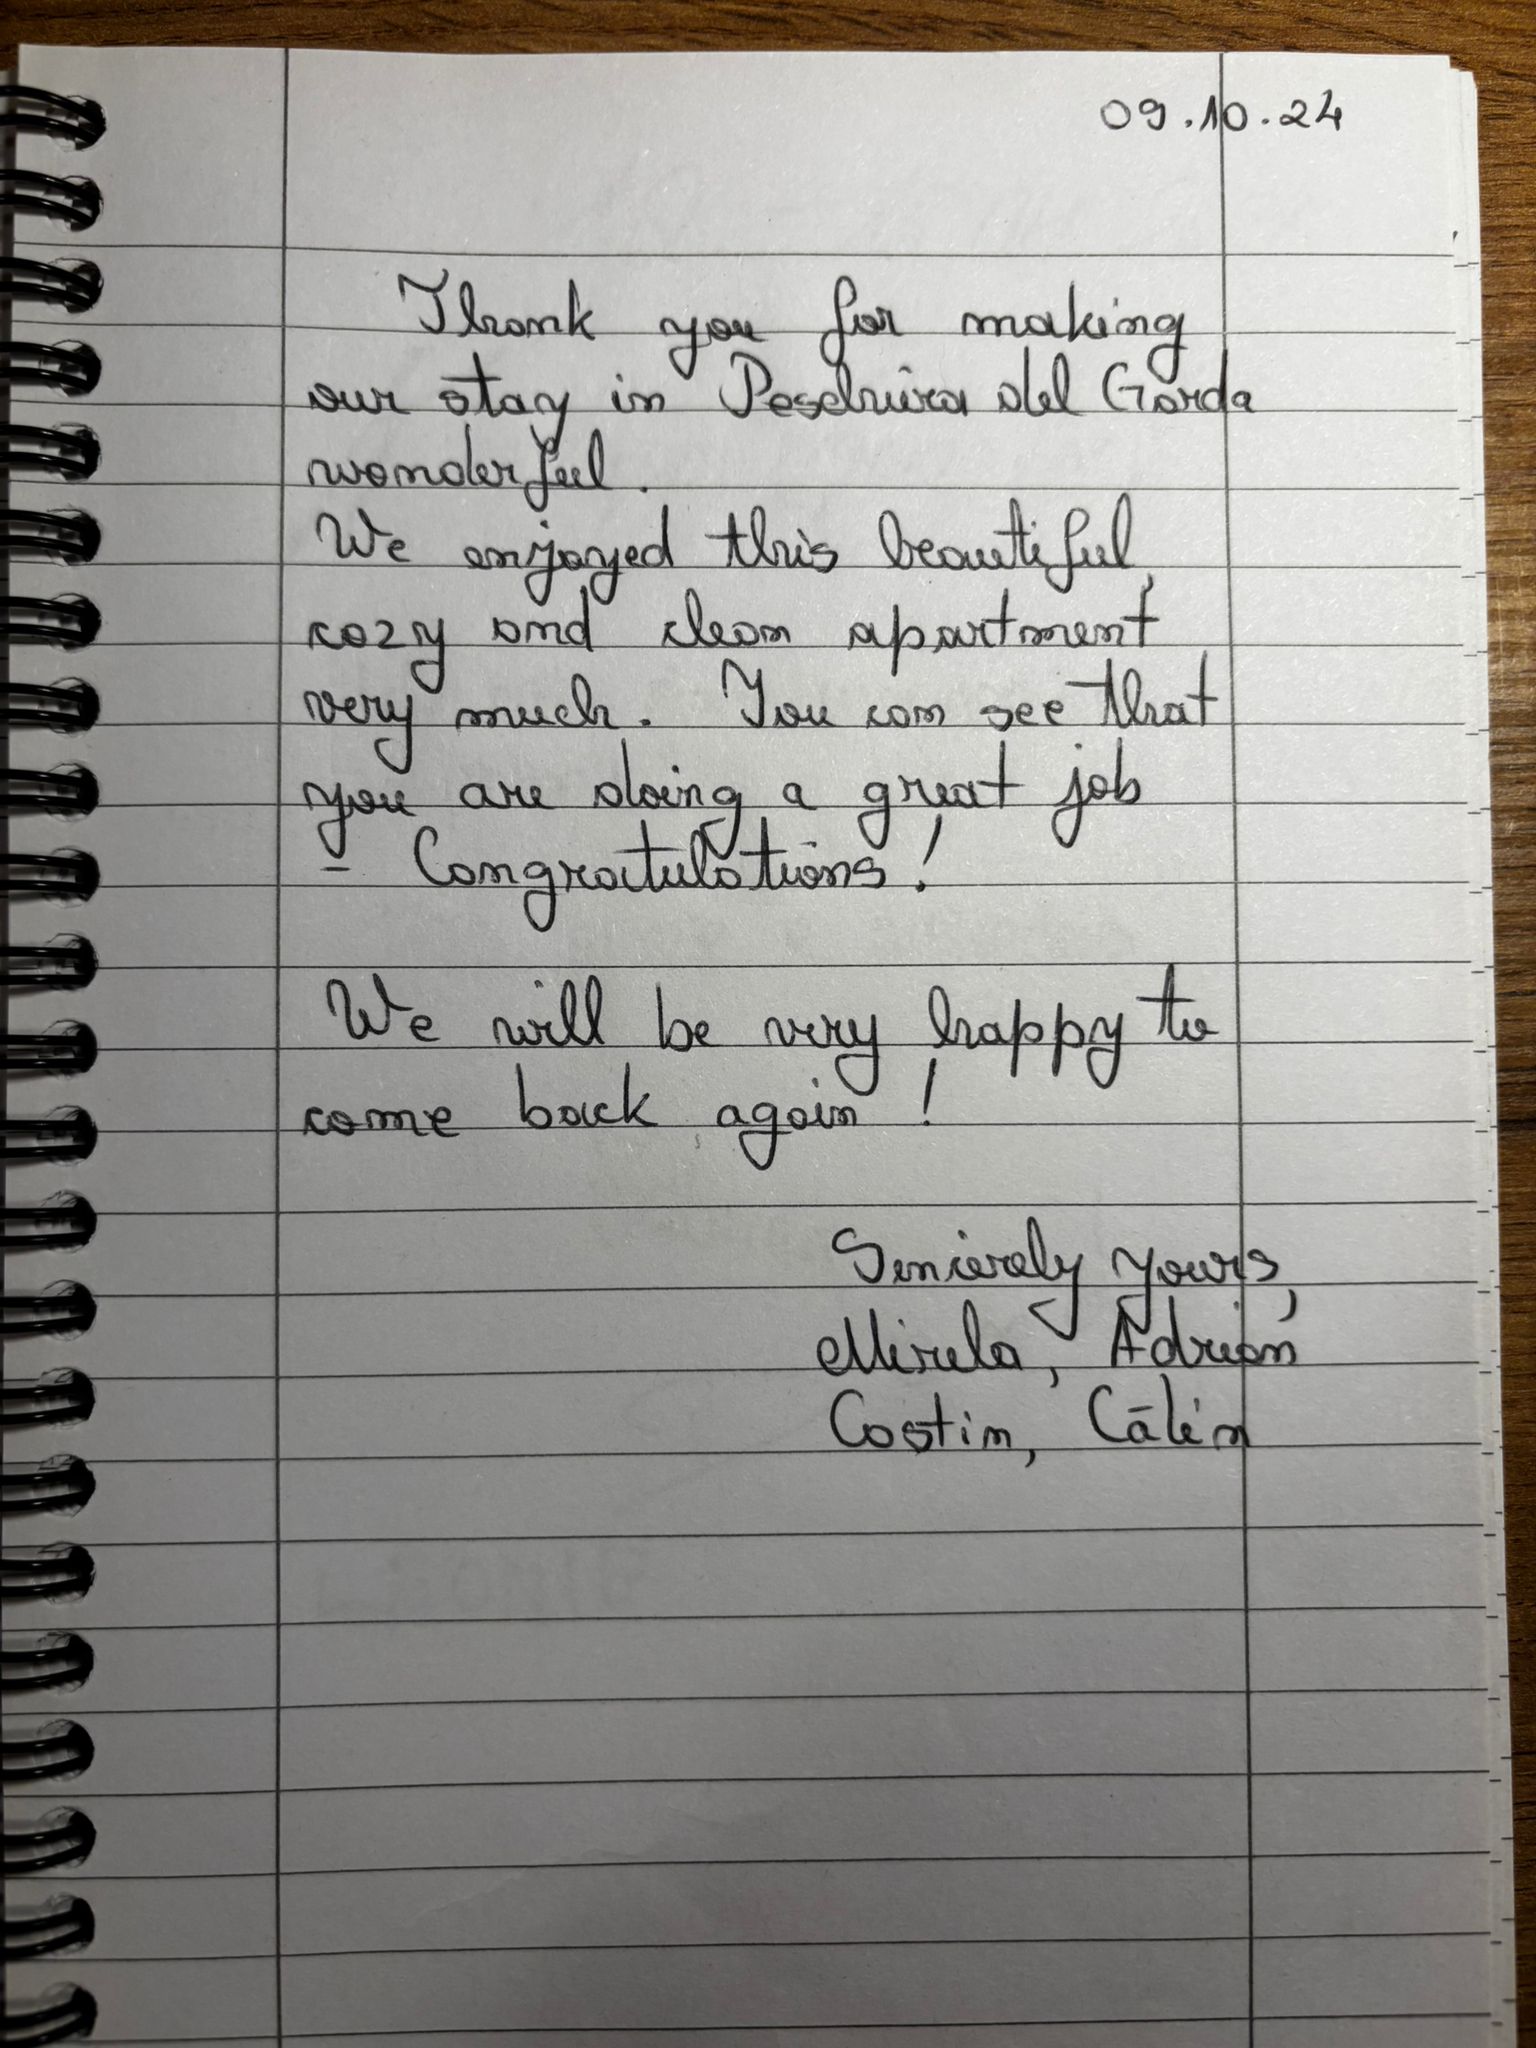 09.10.24
Thank you for making
our stay in Peschiera del Garda
wonderful.
We enjoyed this beautiful,
cozy and clean apartment
very much. You can see that
you are doing a great job
- Congratulations!
We will be very happy to
come back again!
Sencerely yours,
Mirela, Adrian
Costin, Călin